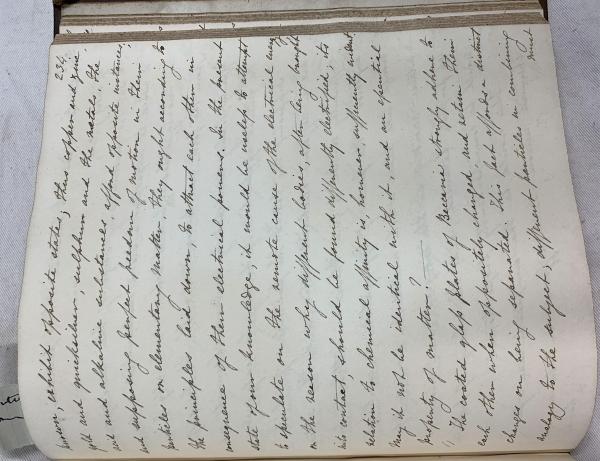 234
known, exhibit opposite states; thus copper and zinc,
gold and quicksilver, sulphur and the metals, the
acid and alkaline substances, afford apposite instances;
and supposing perfect freedom of motion in their
particles or elementary matter, they ought according to
the principles laid down, to attract each other in
consequence of their electrical powers. In the present
state of our knowledge, it would be useless to attempt
to speculate on the remote cause of the electrical energy
or the reason why different bodies, after being brought
into contact, should be found differently electrified; its
relation to chemical affinity is, however, sufficiently evident.
May it not be identical with it, and an essential
property of matter?
" The coated glass plates of Beccaria strongly adhere to
each other when oppositely charged and retain their
charges on being separated. This fact affords a distinct
analogy to the subject; different particles in combining
must